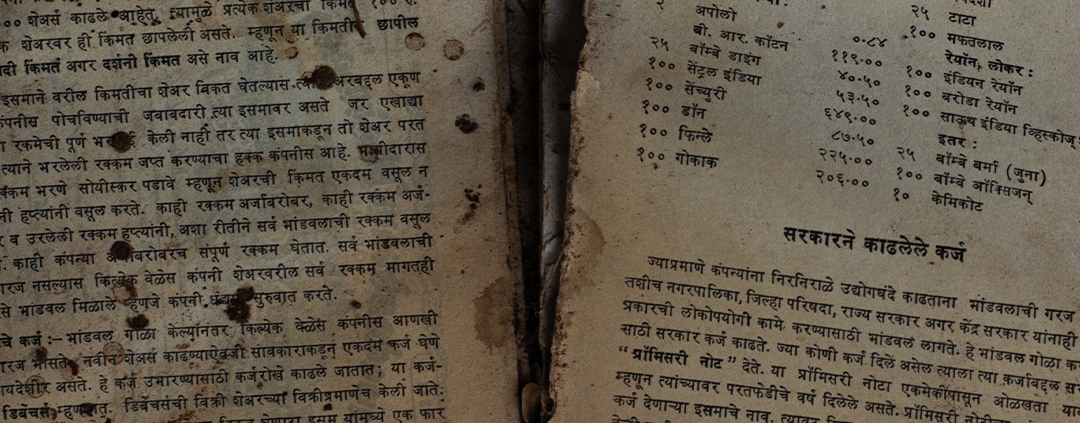 ०० शेअर्स काढले आहेत. त्यामुळे प्रत्येक शेअरची किंमत १०० रु.
क शेअरवर ही किंमत छापलेली असते. म्हणून या किंमतीस छापील
किंमत अगर दर्शनी किंमत असे नाव आहे.
इसमाने वरील किमतीचा शेअर विकत घेतल्यास त्या शेअरबद्दल एकूण
पोचविण्याची जबाबदारी त्या इसमावर असते जर एखाद्या
रकमेची पूर्ण केली नाही तर त्या इसमाकडून तो शेअर परत
त्याने भरलेली रक्कम जप्त करण्याचा हक्क कंपनीस आहे. भागीदारास
रक्कम भरणे सोयीस्कर पडावे म्हणून शेअरची किंमत एकदम वसूल न
नी हप्त्यांनी वसूल करते. काही रक्कम अर्जाबरोबर, काही रक्कम अर्ज-
र व उरलेली रक्कम हप्त्यांनी, अशा रीतीने सर्व भांडवलाची रक्कम वसूल
काही कंपन्या अर्जाबरोबरच संपूर्ण रक्कम घेतात. सर्व भांडवलाची
गरज नसल्यास कित्येक वेळेस कंपनी शेअरवरील सर्व रक्कम मागतही
से भांडवल मिळाले म्हणजे कंपनी धंद्यास सुरुवात करते.
चे कर्ज :– भांडवल गोळा केल्यानंतर कित्येक वेळेस कंपनीस आणखी
गरज भासते. नवीन शेअर्स काढण्याऐवजी सावकाराकडून एकदम कर्ज घेणे
यदेशीर असते. हे कर्ज उभारण्यासाठी कर्जरोखे काढले जातात; या कर्ज-
डिबेंचर्स म्हणतात. डिबेंचर्सची विक्री शेअरच्या विक्रीप्रमाणेच केली जाते:
इसम यांमध्ये एक फार
अपोलो
बी. आर. कॉटन ०.८४
२५ बॉम्बे डाइंग ११९.००
१०० सेंट्रल इंडिया ४०.५०
१०० सेंच्युरी ५३.५०
१०० डॉन ६४९.००
१०० फिन्ले ८७.५०
१०० गोकाक २२५.००
२०६.००
२५ टाटा
१०० मफतलाल
रेयॉन, लोकर :
१०० इंडियन रेयॉन
१०० बरोडा रेयॉन
१०० साऊथ इंडिया व्हिस्कोज
इतर :
२५ बॉम्बे बर्मा (जुना)
१०० बॉम्बे ऑक्सिजन्
१० केमिकोट
सरकारने काढलेले कर्ज
ज्याप्रमाणे कंपन्यांना निरनिराळे उद्योगधंदे काढताना भांडवलाची गरज
तशीच नगरपालिका, जिल्हा परिषदा, राज्य सरकार अगर केंद्र सरकार यांनाही
प्रकारची लोकोपयोगी कामे करण्यासाठी भांडवल लागते. हे भांडवल गोळा कर
साठी सरकार कर्ज काढते. ज्या कोणी कर्ज दिले असेल त्याला त्या कर्जाबद्दल सर
“ प्रॉमिसरी नोट ” देते. या प्रॉमिसरी नोटा एकमेकींपासून ओळखता याव
म्हणून त्यांच्यावर परतफेडीचे वर्ष दिलेले असते. प्रॉमिसरी
कर्ज देणाऱ्या इसमाचे नाव,